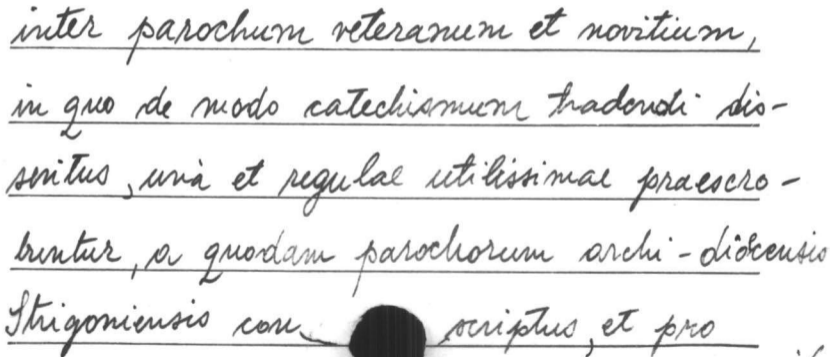 inter parochum veteranum et novitium,
in quo de modo catechismum tradendi dis-
seritus, unà et regulae utilissimae praescro-
buntur, a quodam parochorum archi-dioecensis
Strigoniensis con scriptus, et pro